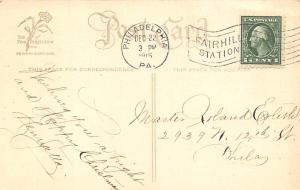 Post Card
PHILADELPHIA
DEC 22
3 PM
1915
PA.
FAIRHILL
STATION
CENT
THIS SPACE FOR CORRESPONDENCE
THIS SPACE FOR
Wishing you a bright
and Happy Christmas
Master Roland
2939 N. 12th St.
Phila